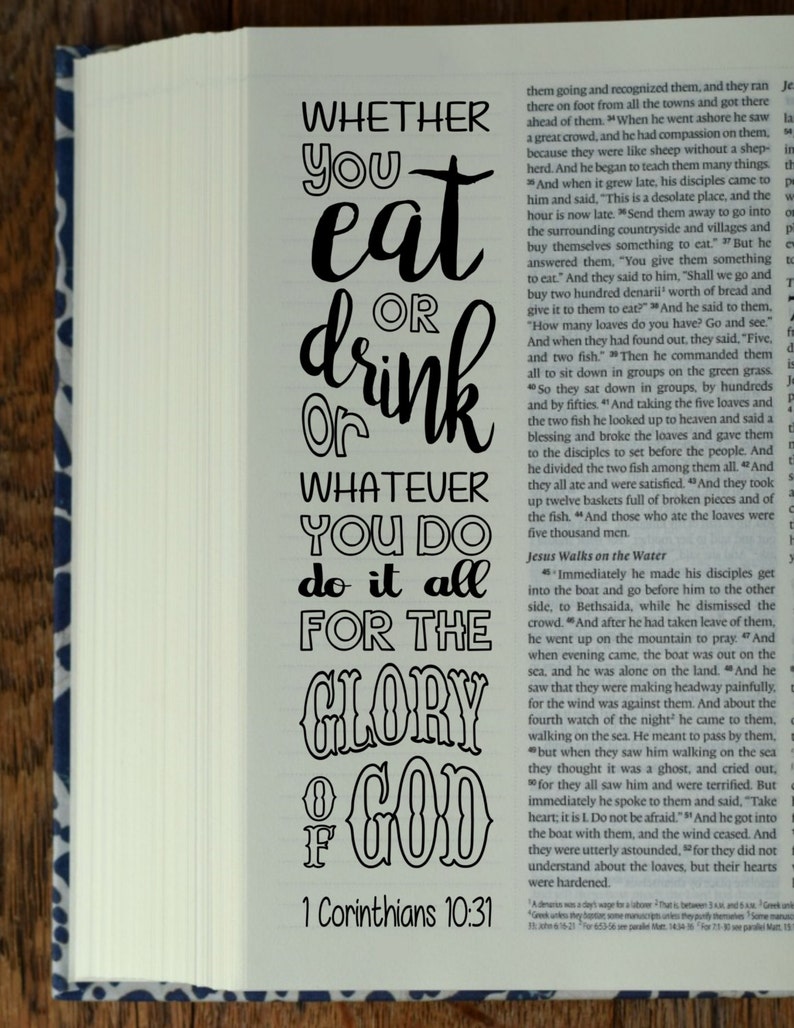 WHETHER
YOU
eat
OR
drink
Or
WHATEVER
YOU DO
do it all
FOR THE
GLORY
OF
GOD
1 Corinthians 10:31
them going and recognized them, and they ran
there on foot from all the towns and got there
ahead of them. 34 When he went ashore he saw
a great crowd, and he had compassion on them,
because they were like sheep without a shep-
herd. And he began to teach them many things.
35 And when it grew late, his disciples came to
him and said, "This is a desolate place, and the
hour is now late. 36 Send them away to go into
the surrounding countryside and villages and
buy themselves something to eat." 37 But he
answered them, "You give them something
to eat." And they said to him, "Shall we go and
buy two hundred denarii1 worth of bread and
give it to them to eat?" 38 And he said to them,
"How many loaves do you have? Go and see."
And when they had found out, they said, "Five,
and two fish." 39 Then he commanded them
all to sit down in groups on the green grass.
40 So they sat down in groups, by hundreds
and by fifties. 41 And taking the five loaves and
the two fish he looked up to heaven and said a
blessing and broke the loaves and gave them
to the disciples to set before the people. And
he divided the two fish among them all. 42 And
they all ate and were satisfied. 43 And they took
up twelve baskets full of broken pieces and of
the fish. 44 And those who ate the loaves were
five thousand men.
Jesus Walks on the Water
45 Immediately he made his disciples get
into the boat and go before him to the other
side, to Bethsaida, while he dismissed the
crowd. 46 And after he had taken leave of them,
he went up on the mountain to pray. 47 And
when evening came, the boat was out on the
sea, and he was alone on the land. 48 And he
saw that they were making headway painfully,
for the wind was against them. And about the
fourth watch of the night2 he came to them,
walking on the sea. He meant to pass by them,
49 but when they saw him walking on the sea
they thought it was a ghost, and cried out,
50 for they all saw him and were terrified. But
immediately he spoke to them and said, "Take
heart; it is I. Do not be afraid." 51 And he got into
the boat with them, and the wind ceased. And
they were utterly astounded, 52 for they did not
understand about the loaves, but their hearts
were hardened.
1 A denarius was a day's wage for a laborer 2 That is, between 3 A.M. and 6 A.M. 3 Greek
4 Greek unless they baptize; some manuscripts unless they purify themselves 5 Some
33; John 6:16-21 For 6:53-56 see parallel Matt. 14:34-36 7 For 7:1-30 see parallel Matt.